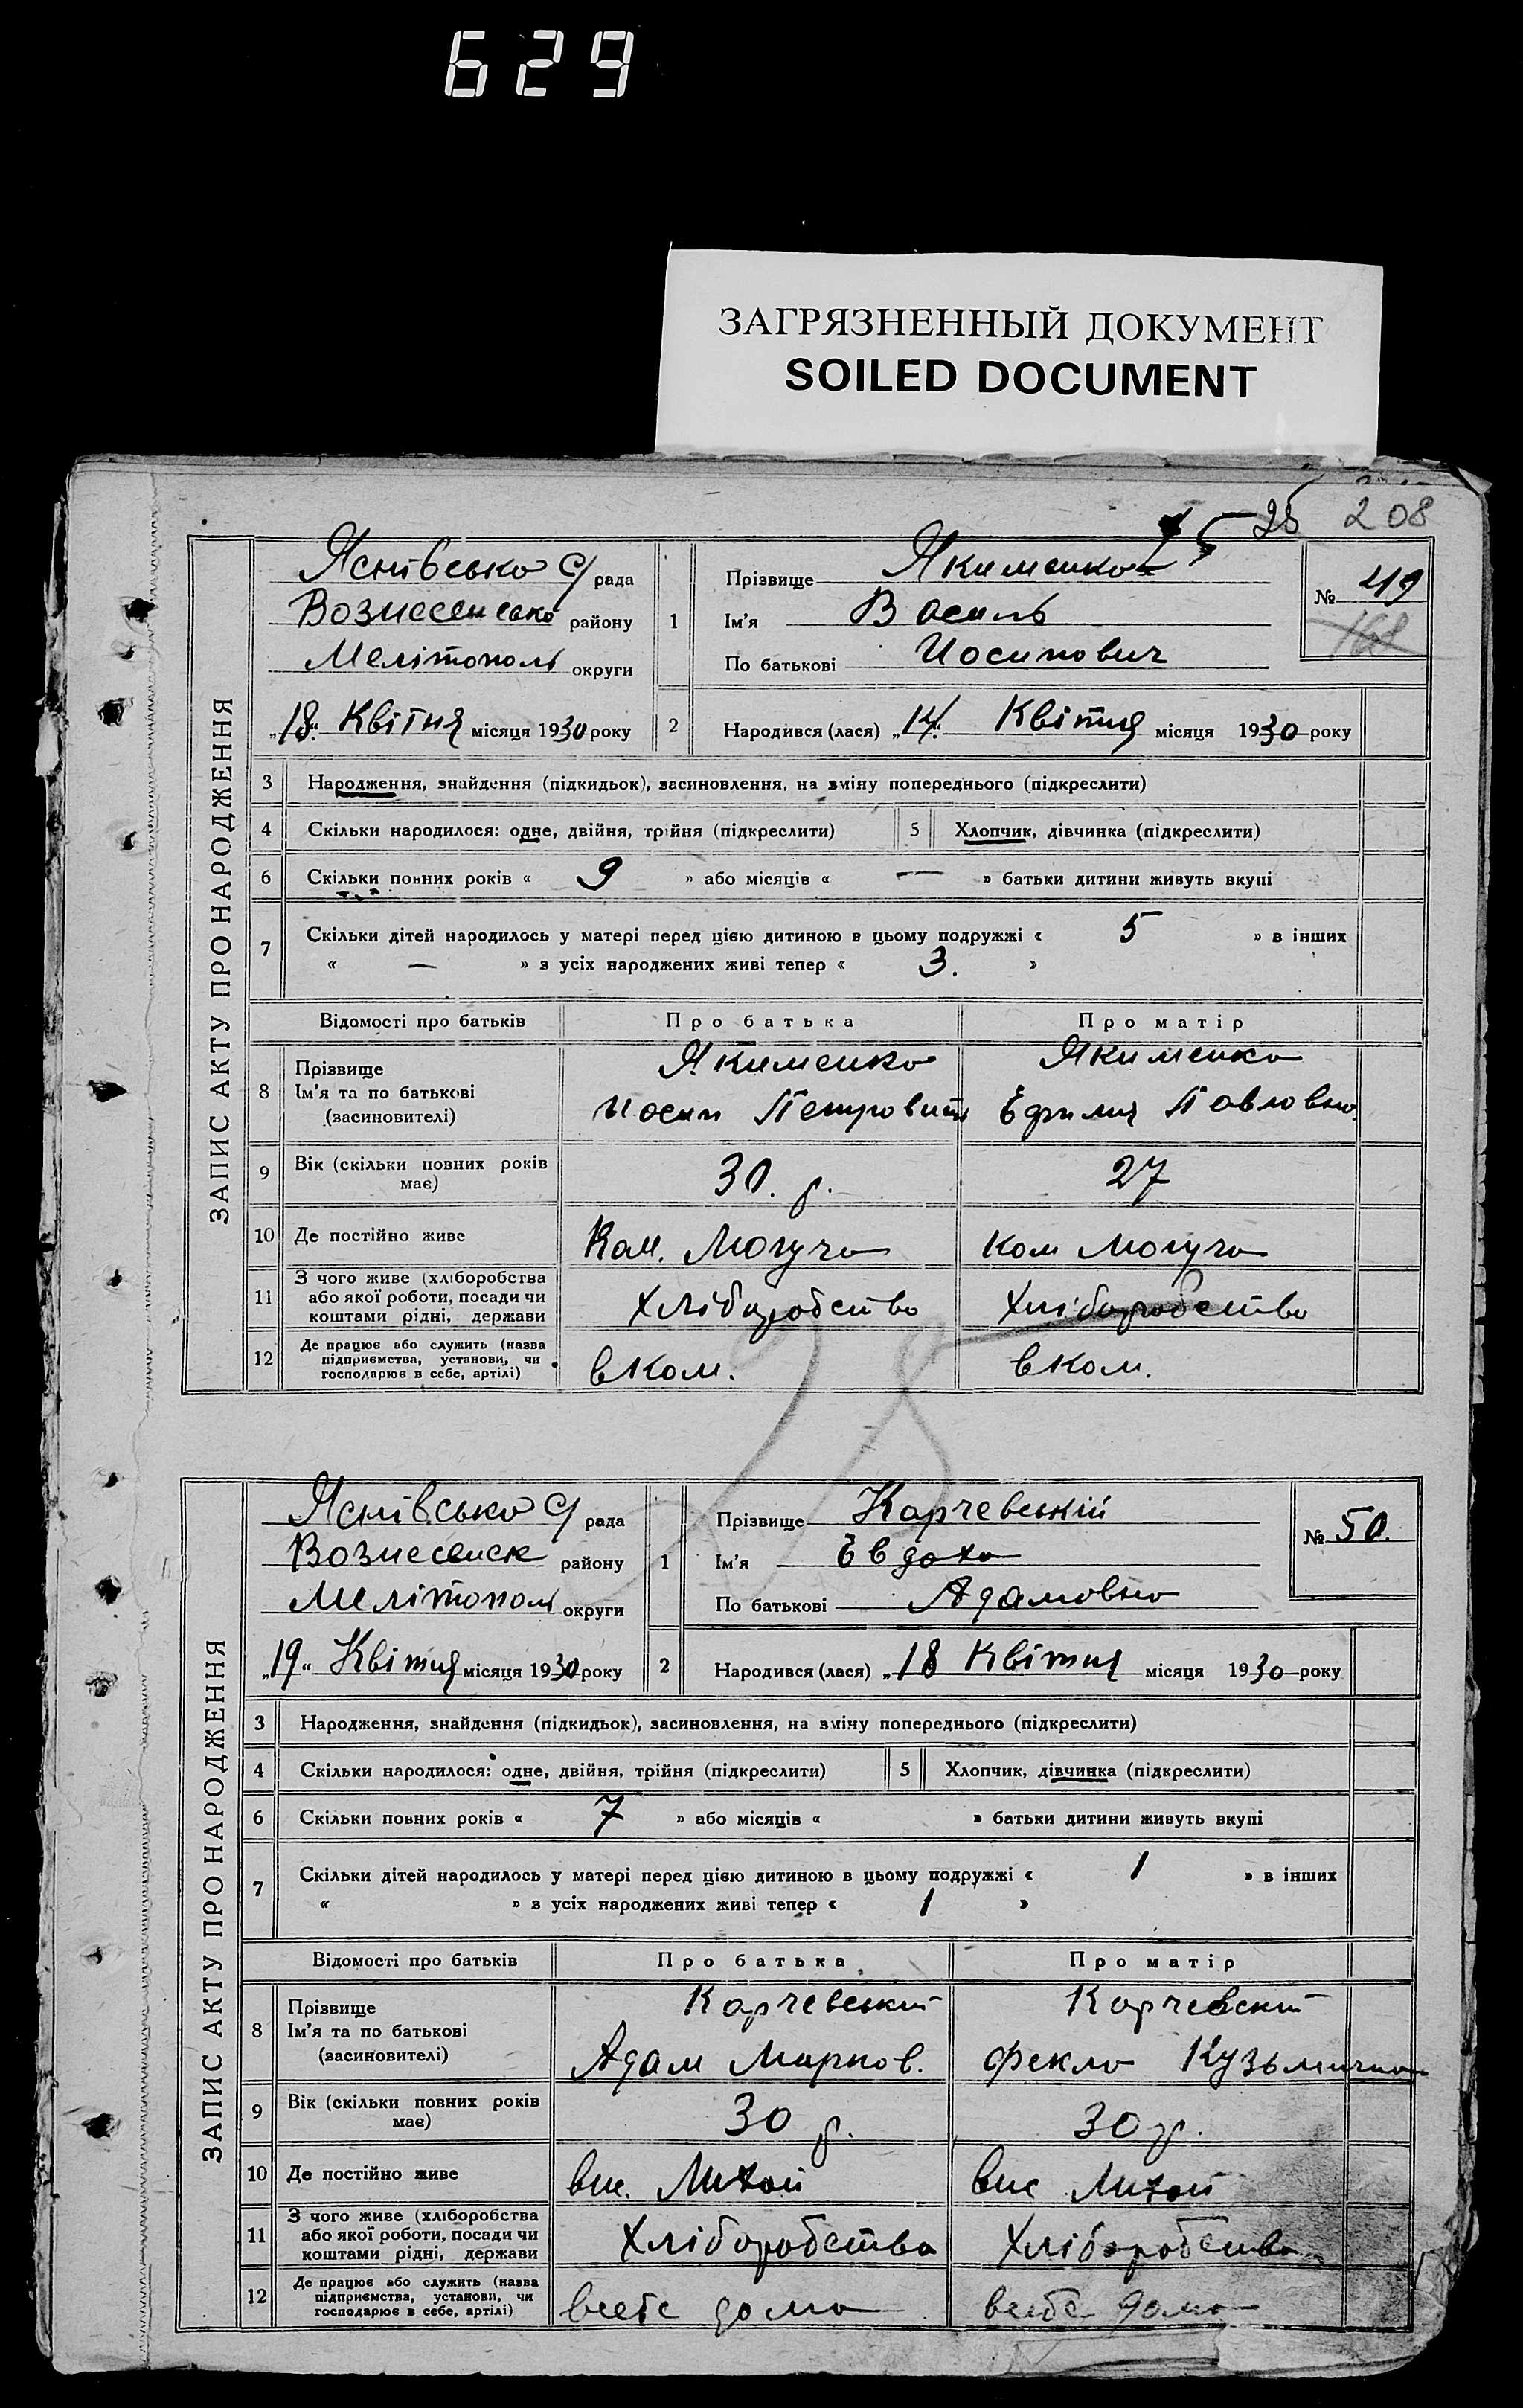 629
ЗАГРЯЗНЕННЫЙ ДОКУМЕНТ
SOILED DOCUMENT
25 208
ЗАПИС АКТУ ПРО НАРОДЖЕННЯ
Яснівсько с/рада
Вознесенсько району
Мелітополь округи
„18“ Квітня місяця 1930 року
1
Прізвище Якименко
Ім'я Василь
По батькові Иосипович
№ 49
168
2 Народився (лася) „14“ Квітня місяця 1930 року
3 Народження, знайдення (підкидьок), засиновлення, на зміну попереднього (підкреслити)
4 Скільки народилося: одне, двійня, трійня (підкреслити) 5 Хлопчик, дівчинка (підкреслити)
6 Скільки повних років « 9 » або місяців « — » батьки дитини живуть вкупі
7 Скільки дітей народилось у матері перед цією дитиною в цьому подружжі « 5 » в інших
« — » з усіх народжених живі тепер « 3. »
Відомості про батьків Про батька Про матір
8 Прізвище Якименко Якименко
Ім'я та по батькові Иосип Петрович Павловна
(засиновителі)
9 Вік (скільки повних років має) 30. р. 27
10 Де постійно живе Ком. Могуча ком Могуча
11 З чого живе (хліборобства
або якої роботи, посади чи Хліборобство Хліборобство
коштами рідні, держави
12 Де працює або служить (назва
підприємства, установи, чи в ком. в ком.
господарює в себе, артілі)
28
ЗАПИС АКТУ ПРО НАРОДЖЕННЯ
Яснівсько с/рада
Вознесенск району
Мелітополь округи
„19“ Квітня місяця 1930 року
1
Прізвище Карчевській
Ім'я Евдоха
По батькові Адамовна
№ 50.
2 Народився (лася) „18 Квітня місяця 1930 року
3 Народження, знайдення (підкидьок), засиновлення, на зміну попереднього (підкреслити)
4 Скільки народилося: одне, двійня, трійня (підкреслити) 5 Хлопчик, дівчинка (підкреслити)
6 Скільки повних років « 7 » або місяців « » батьки дитини живуть вкупі
7 Скільки дітей народилось у матері перед цією дитиною в цьому подружжі « 1 » в інших
« » з усіх народжених живі тепер « 1 »
Відомості про батьків Про батька Про матір
8 Прізвище Карчевський Карчевский
Ім'я та по батькові Адам Марков. Фекла Кузьмична
(засиновителі)
9 Вік (скільки повних років має) 30 р. 30 р.
10 Де постійно живе
11 З чого живе (хліборобства
або якої роботи, посади чи Хліборобство Хліборобство
коштами рідні, держави
12 Де працює або служить (назва
підприємства, установи, чи дома дома
господарює в себе, артілі)